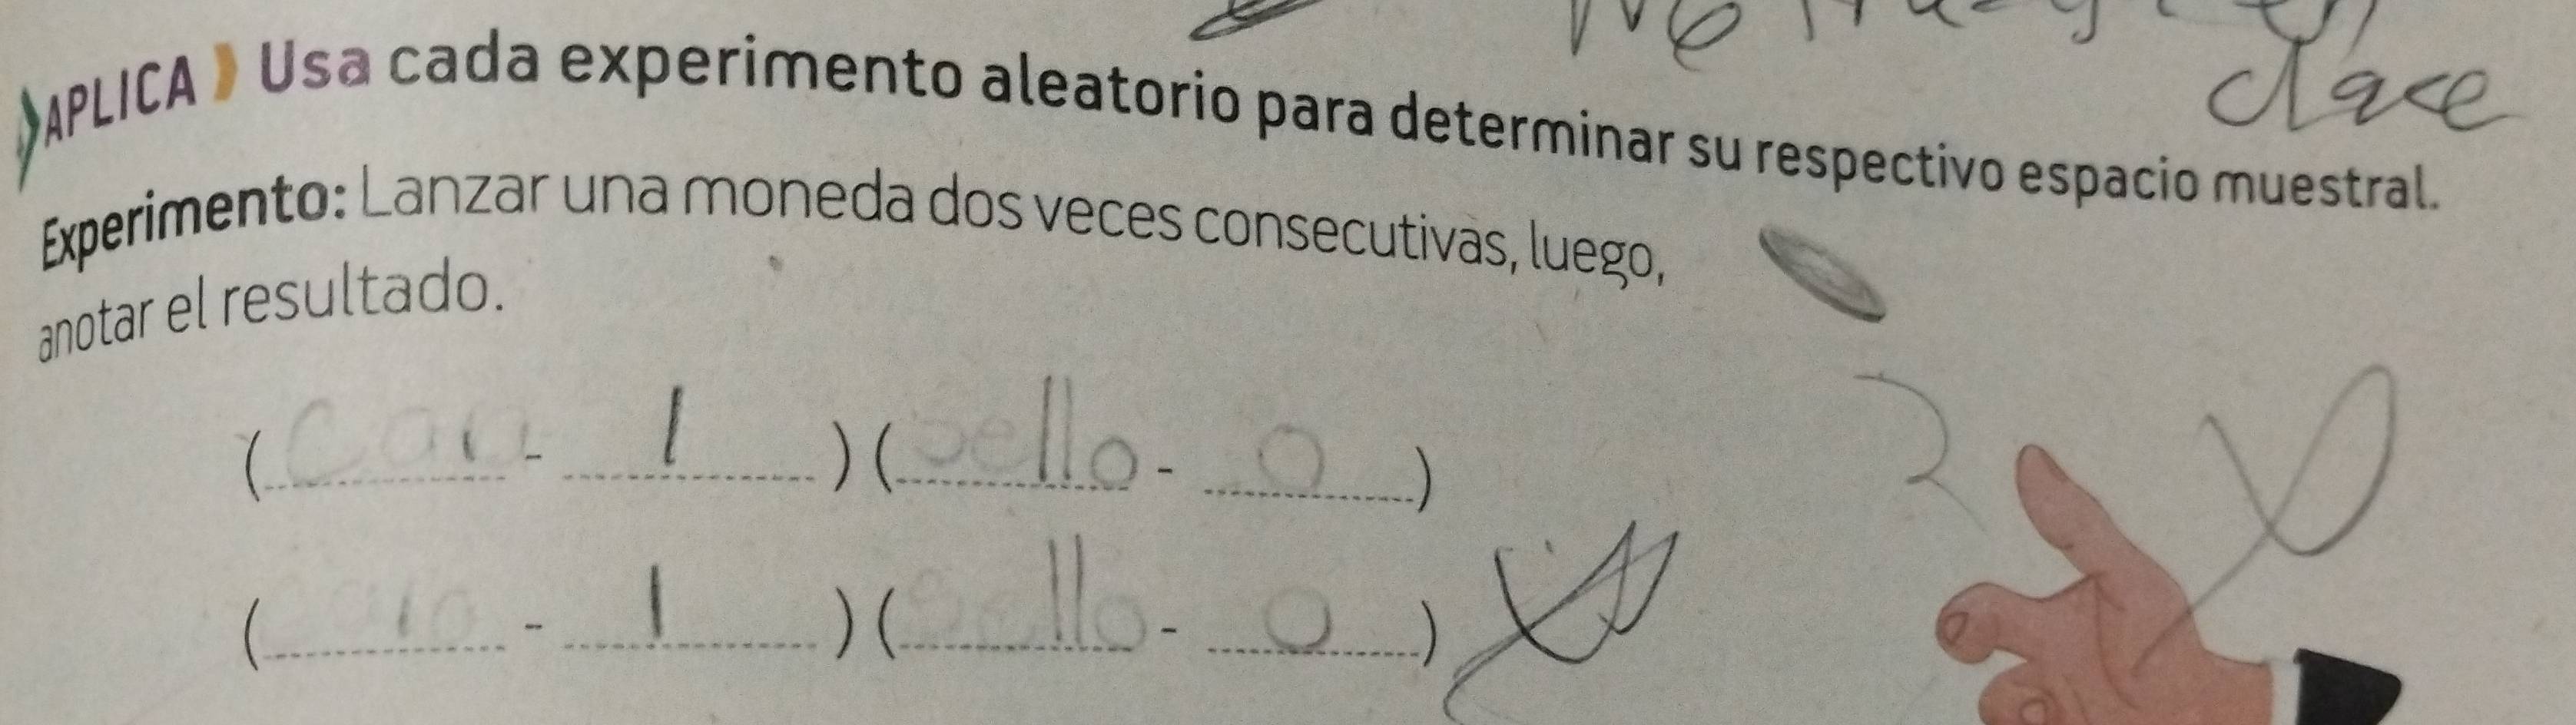 clace
APLICA Usa cada experimento aleatorio para determinar su respectivo espacio muestral.
Experimento: Lanzar una moneda dos veces consecutivas, luego,
anotar el resultado.
( Cara - 1 ) ( sello - 0 )
( - 1 ) ( Sello - 0 )